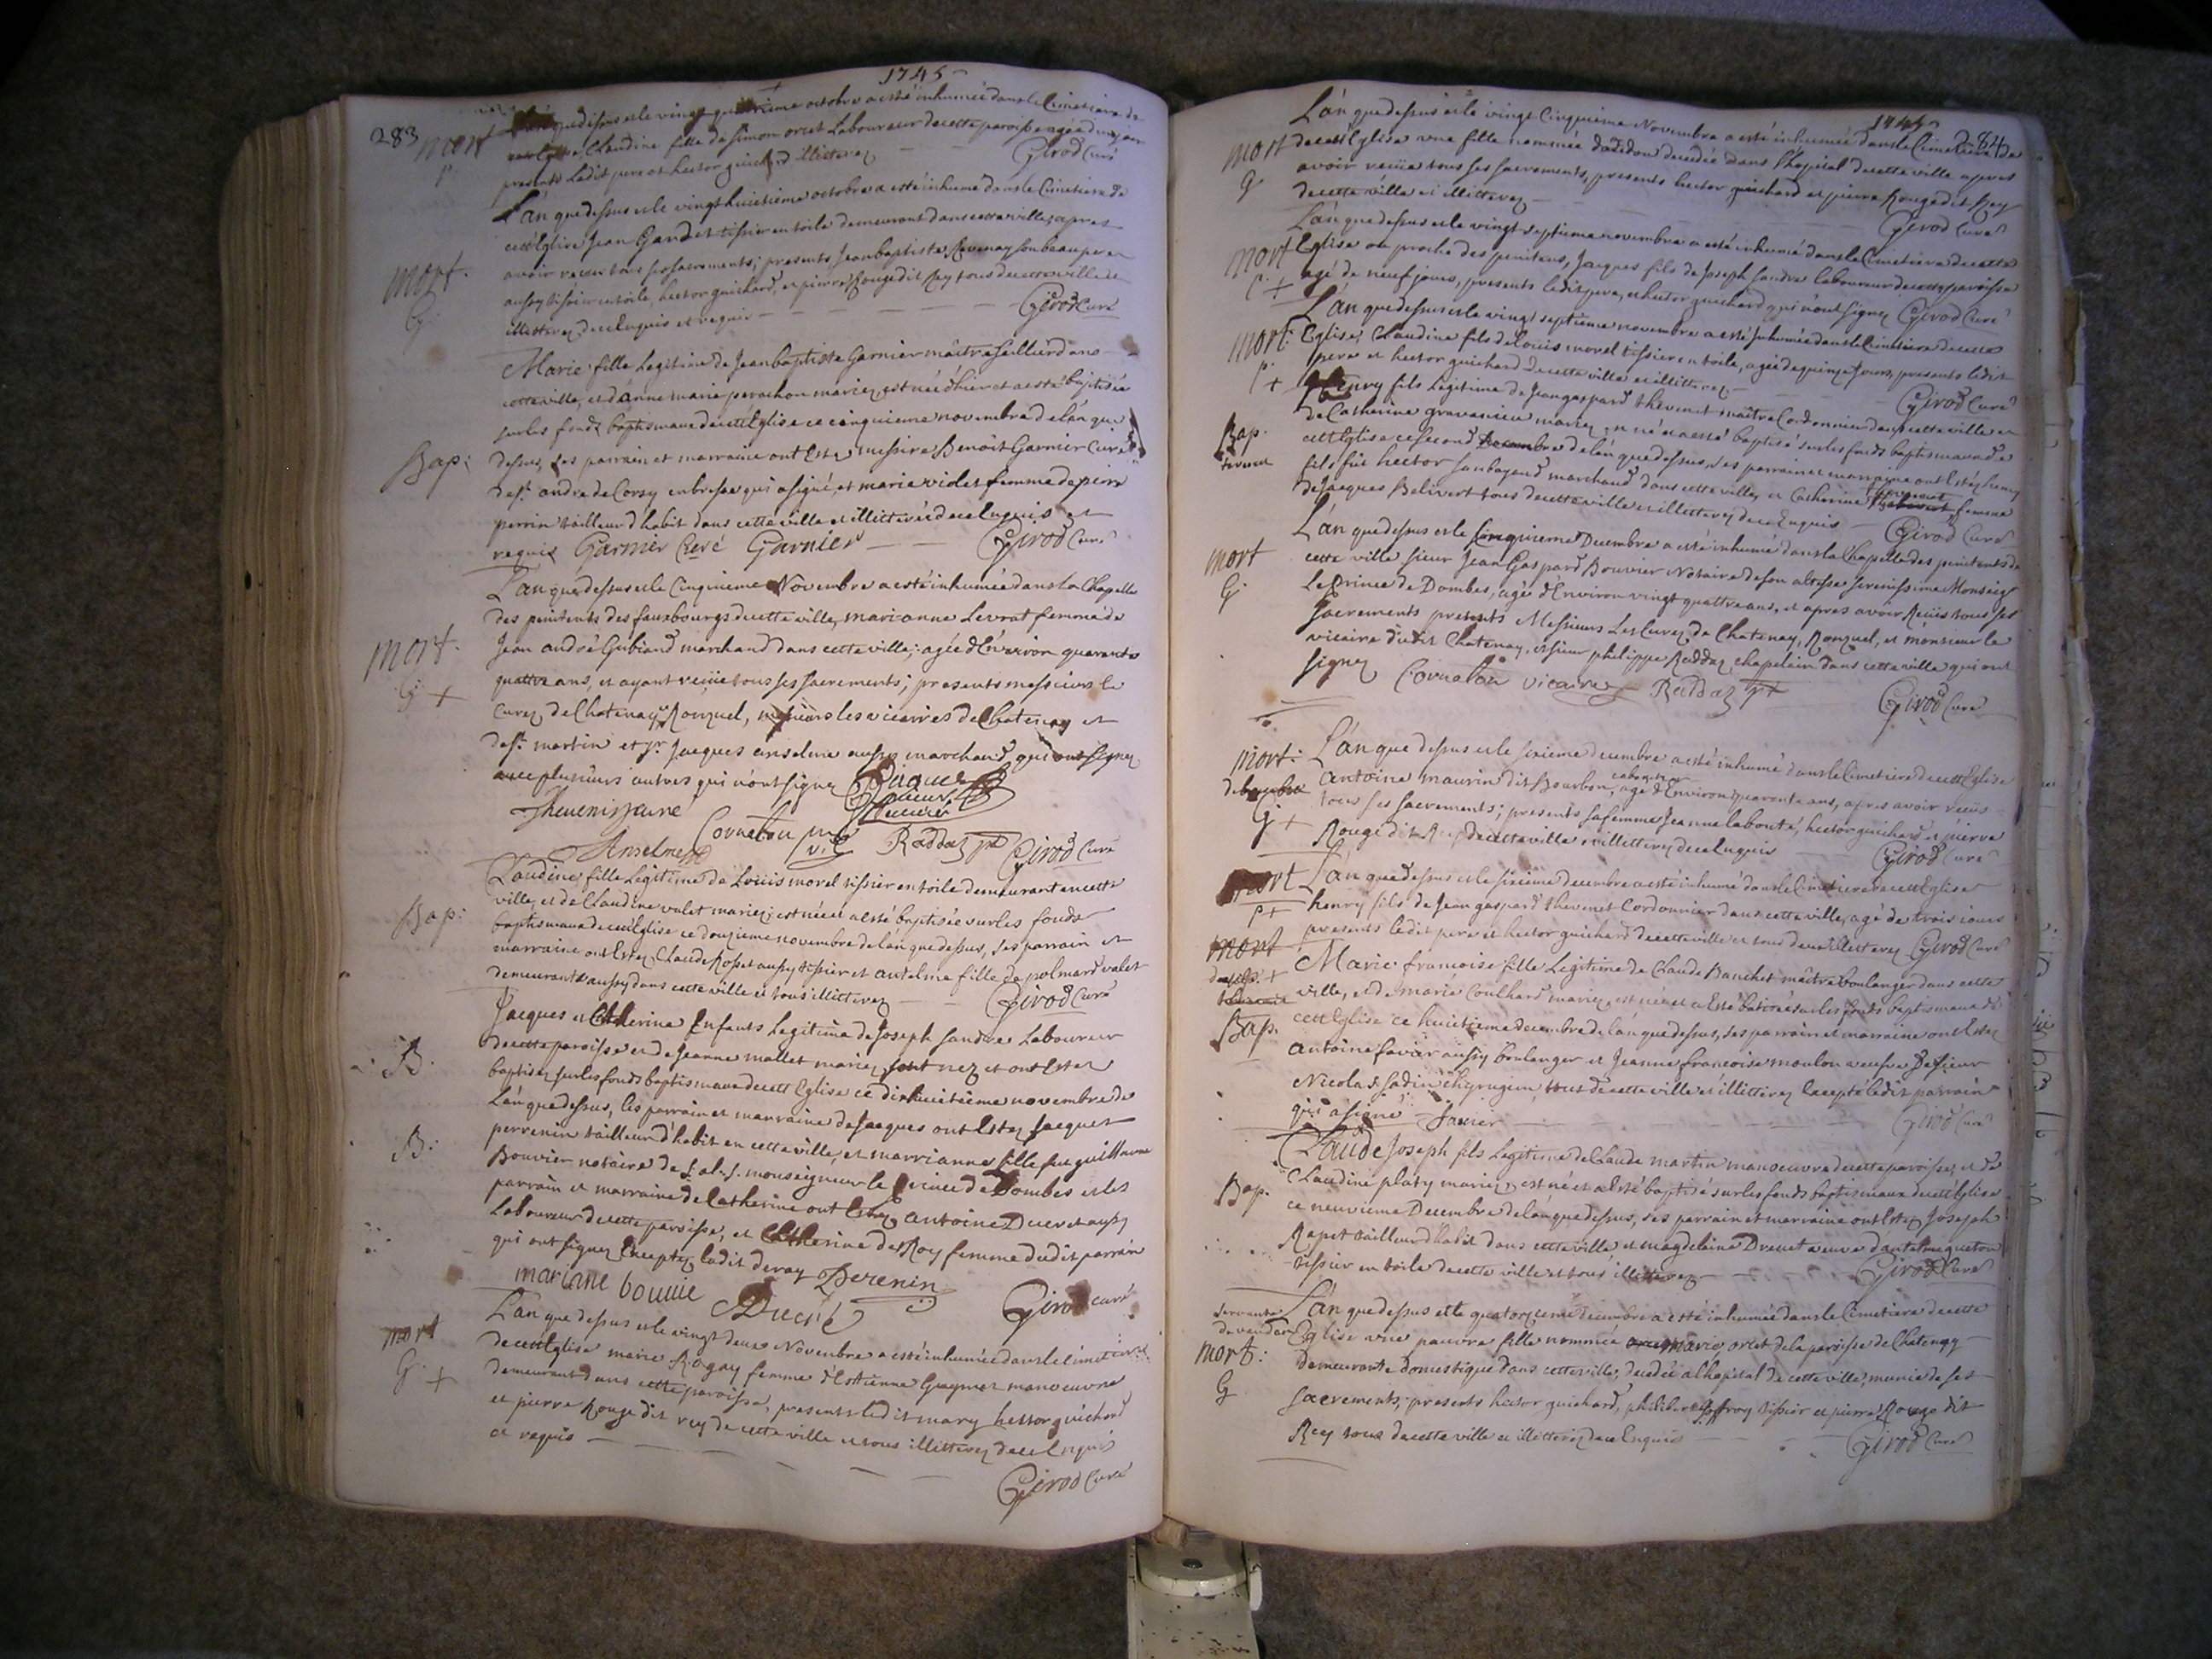 1745
283
mort
p.
L'án que dessus et le vingt octobre a esté inhumée dans le Cimetiere de
Claudine fille de Simon orset Laboureur de cette paroisse agée d'un an
presents Ledit pere et hector guichard illitterez Girod Curé
L'án que dessus et le vingt huictieme octobre a esté inhumé dans le Cimetiere de
cett Eglise Jean Gandet tissier en toile demeurant dans cette ville, apres
mort.
G.
avoir receu tous ses sacrements; presents Jean baptiste Revenay son beau pere
aussy tissier en toile, hector guichard, et pierre Rouge dit Rey tous de cette ville et
illitterez de ce Enquis et requis Girod Curé
Marie fille Legitime de Jean baptiste Garnier maître seillier dans
cette ville, et d'anne marie perachon mariez, est née d'hier et a esté baptisée
sur les fonds baptismaux de cett Eglise ce cinquieme novembre de l'án que
Bap:
dessus, ses parrain et marraine ont Estez messire Benoit Garnier Curé
de st. andré de Corsy en bresse qui a signé, et marie violet femme de pierre
perrin tailleur d'habit dans cette ville et illitterée de ce Enquis et
requis Garnier Curé Garnier Girod Curé
L'án que dessus et le Cinquieme Novembre a esté inhumée dans la Chapelle
des penitents des fauxbourgs de cette ville, marianne Levrat femme de
mort.
G. +
Jean andré Gubiand marchand dans cette ville; agée d'Environ quarante
quattre ans, et ayant receüe tous ses sacrements; presents messieurs les
Curez de Chatenay, Ronzuel, messieurs les vicaires de Chatenay et
de st. martin et sr. Jacques anselme aussy marchand, qui ont signez
avec plusieurs autres qui n'ont signé
Thevenis Jeune
Anselme
Cornaton vic
Raddaz ptre
Girod Curé
Claudine fille Legitime de Loüis morel tissier en toile demeurant en cette
ville, et de Claudine valet mariez; est née et a esté baptisée sur les fonds
Bap:
baptismaux de cett Eglise ce douzieme novembre de l'án que dessus, ses parrain et
marraine ont Estez Claude Rosset aussy tissier et antelme fille de polmard valet
demeurants aussy dans cette ville et tous illitterez Girod Curé
Jacques et Catherine Enfants Legitime de Joseph Sandre Laboureur
B.
de cette paroisse et de Jeanne mallet mariez, sont nez et ont Estez
baptisez sur les fonds baptismaux de cett Eglise ce dixhuictieme novembre de
L'án que dessus, les parrain et marraine de Jacques ont Estez Jacques
B:
perrenin tailleur d'habit en cette ville, et marrianne fille feu guillaume
Bouvier notaire de S. al. S. monseigneur le prince de Dombes et les
parrain et marraine de Catherine ont Estez antoine Ducret aussy
Laboureur de cette paroisse, et Catherine deRoy femme dudit parrain
qui ont signez Exceptez ladit deroy
mariane bouuie Perenin
Ducré Girod curé
mort
G. +
L'an que dessus et le vingt deux Novembre a esté inhumée dans le cimetiere
de cett Eglise marie Rogay femme d'Estienne Guaymer manoeuvre
demeurant dans cette paroisse, presents ledit mary hector guichard
et pierre Rouge dit rey de cette ville et tous illitterez de ce Enquis
et requis
Girod Curé
1745
284
mort
G
L'án que dessus et le vingt Cinquieme Novembre a esté inhumée dans le Cimetiere de
de cett Eglise une fille nommée dodidon decedée dans l'hopital de cette ville apres
avoir receüe tous ses sacrements, presents hector guichard et pierre Rouge dit Rey
de cette ville et illitterez Girod Curé
mort
p. +
L'án que dessus et le vingt septieme novembre a esté inhumé dans le Cimetiere de cette
Eglise ou proche des penitens, Jacques fils de Joseph Sandre laboureur de cette paroisse
agé de neuf jours, presents ledit pere, et hector guichard qui n'ont signez Girod Curé
mort.
p. +
L'án que dessus et le vingt septieme novembre a esté inhumée dans le Cimetiere de cette
Eglise Claudine fils de Loüis morel tissier en toile, agée de quinze Jours, presents ledit
pere et hector guichard de cette ville et illitterez Girod Curé
Bap.
henry fils Legitime de Jean gaspard thevenet maître Cordonnier dans cette ville et
de Catherine gravanieu mariez, est né et a esté baptisé sur les fonds baptismaux de
cett Eglise ce second Decembre de l'án que dessus, ses parrain et marraine ont Estez henry
fils fût hector Sanbayand marchand dans cette ville, et Catherine thevenet femme
de Jacques Belivert tous de cette ville et illitterez de ce Enquis Girod Curé
mort
G.
L'án que dessus et le Cinquieme Decembre a esté inhumé dans la Chapelle des penitents de
cette ville sieur Jean Gaspard Bouvier Notaire de son altesse serenissime Monseigr
Le Prince de Dombes, agé d'Environ vingt quattre ans, et apres avoir Reçüs tous ses
sacrements presents Messieurs Les Curez de Chatenay, Ronzuel, et mónsieur le
vicaire dudit Chatenay, et sieur philippe Raddaz chapelain dans cette ville qui ont
signez Cornaton vicaire Raddaz ptre Girod Curé
mort:
G +
L'án que dessus et le sixieme decembre a esté inhumé dans le Cimetiere de cett Eglise
antoine maurin dit Bourbon, cabaretier agé d'Environ quarante ans, apres avoir receüs
tous ses sacrements; presents sa femme Jeanne labonté, hector guichard et pierre
Rouge dit Rey de cette ville et illitterez de ce Enquis Girod Curé
mort
p +
L'án que dessus et le sixieme decembre a esté inhumé dans le Cimetiere de cett Eglise
henry fils de Jean gaspard thevenet Cordonnier dans cette ville, agé de trois jours
presents ledit pere et hector guichard de cette ville et tous deux illitterez Girod Curé
mort
Bap.
Marie francoise fille Legitime de Claude Banchet maître boulanger dans cette
ville, et de marie Coulhard mariez, est née et a Esté batisée sur les fonds baptismaux de
cett Eglise ce huictieme decembre de l'án que dessus, ses parrain et marraine ont Estez
antoine favier aussy boulanger et Jeanne francoise moulon veufve De sieur
Nicolas Sadin chyrugien, tous de cette ville et illitterez Excepté ledit parrain
qui a signé favier Girod Curé
Bap.
Claude Joseph fils Legitime de Claude martin manoeuvre de cette paroisse, et de
Claudine platy mariez, est né et a Esté baptisé sur les fonds baptismaux de cett Eglise
ce neuvieme Decembre de l'án que dessus, ses parrain et marraine ont Estez Joseph
Rapet tailleur d'habit dans cette ville et magdelaine Drevet veuve d'antelme queton
tissier en toile de cette ville et tous illitterez Girod Curé
servante
mort:
G
L'án que dessus et le quatorzieme decembre a esté inhumée dans le Cimetiere de cette
Eglise une pauvre fille nommée marie orset de la paroisse de Chatenay
demeurante domestique dans cette ville; decedée al'hopital de cette ville; munie de ses
sacrements; presents hector guichard, philibert Joffroy tissier et pierre Rouge dit
Rey tous de cette ville et illitterez de ce Enquis Girod Curé